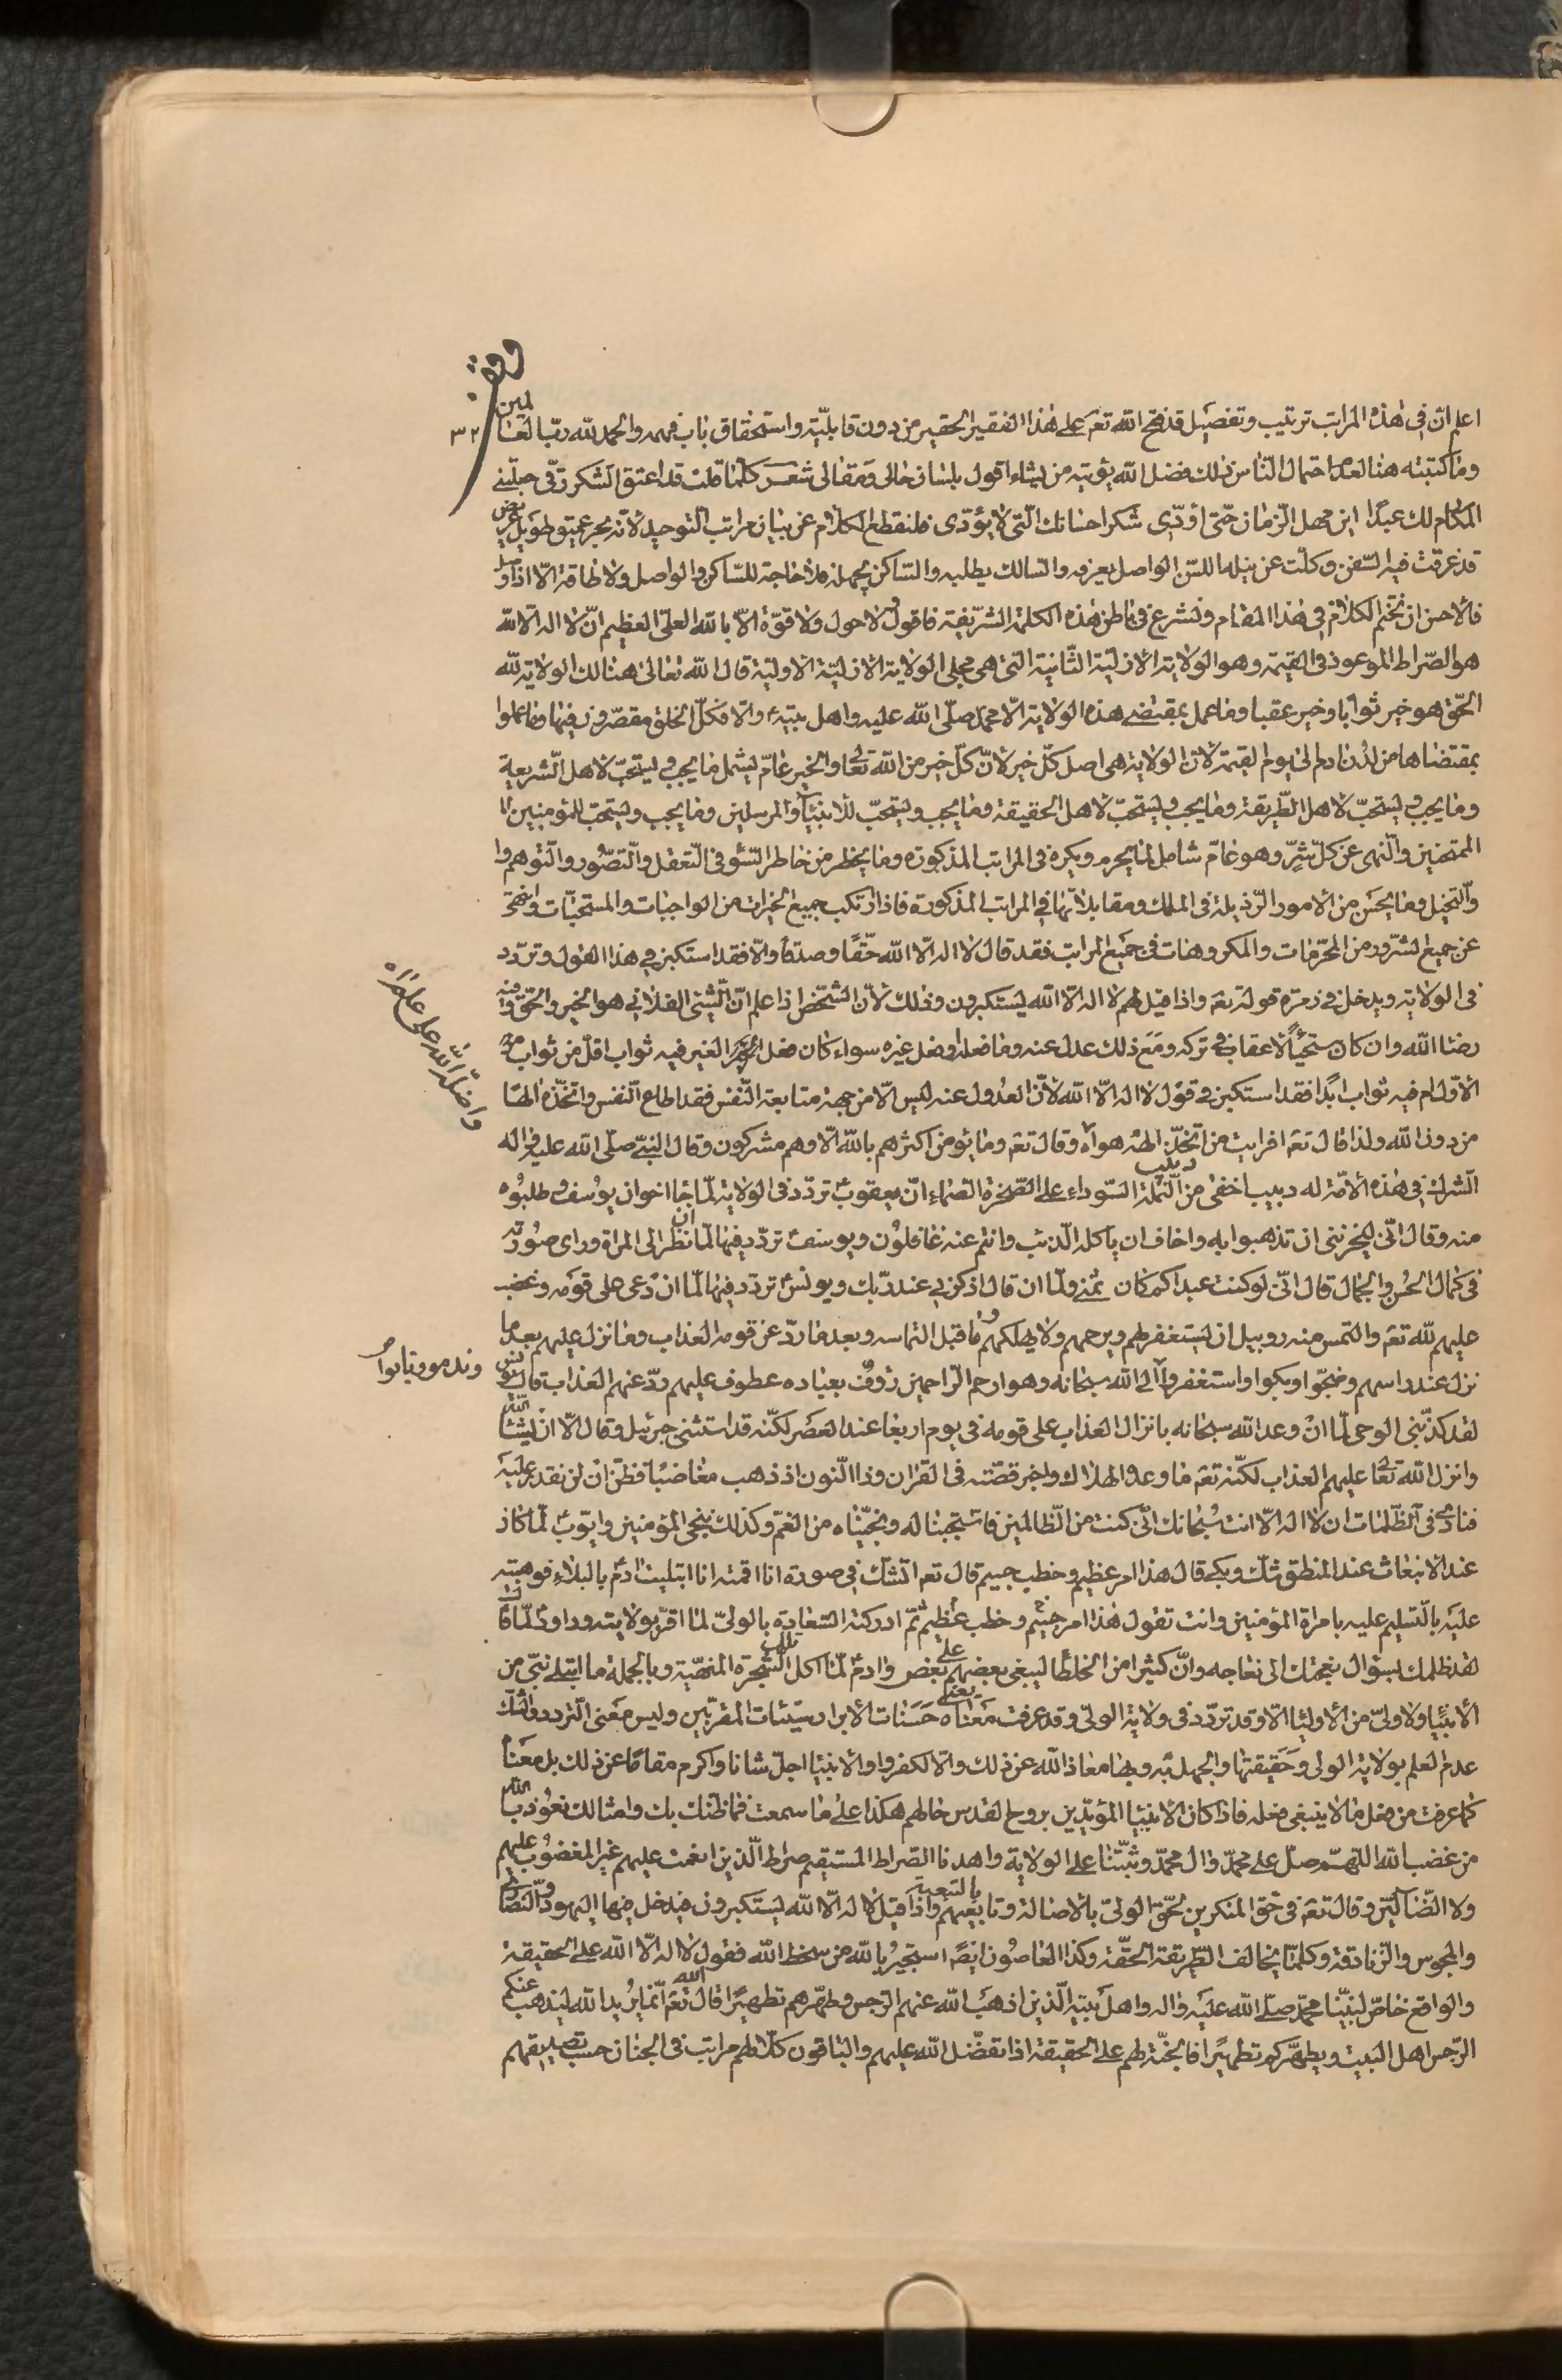 اعلم ان فى هذه المراتب ترتيب وتفصيل قد فتح الله تعم على هذا الفقير الحقير من دون قابليّته واستحقاق باب فهمه والحمد لله ربّ العالمين
٣٢
وما كتبته هنا لعدم احتمال النّاس ذلك فضل الله يؤتيه من يشاء اقول بلسان حالى ومقالى شعر كلّما قلت قد اعتق الشكر رقّى جعلتنى
المكارم لك عبدًا اين مهل الزمان حتّى اُؤدّى شكر احسانك الّتى لا يؤدّى فلنقطع الكلام عن بيان مراتب التوحيد لانّه بحر عميق طويل عريض
قد غرقت فيه السّفن وكلّت عن نيله اللسن الواصل يعرفه والسالك يطلبه والساكن يجهله فلا حاجة للسّاكن والواصل ولا طاقة الّا اذا وصل
فالاحسن ان نختم الكلام فى هذا المقام ونشرع فى باطن هذه الكلمة الشّريفة فاقول لا حول ولا قوّة الّا بالله العلىّ العظيم انّ لا اله الّا الله
هو الصّراط الموعود فى القيٰمة وهو الولاية الازليّة الثّانية التى هى مجلى الولاية الازليّة الاوليّة قال الله تعالى هنالك الولاية لله
الحقّ هو خير ثوابا وخير عقبا وما عمل بمقتضى هذه الولاية الّا محمّد صلّى الله عليه واهل بيته والّا فكلّ الخلق مقصّرون فيها وما عملوا
بمقتضاها من لدن ادم الى يوم القيمة لانّ الولاية هى اصل كلّ خير لانّ كلّ خير من الله تعا والخير عامّ يشمل ما يجب ويستحبّ لاهل الشّريعة
وما يجب ويستحبّ لاهل الطّريقة وما يجب ويستحبّ لاهل الحقيقة وما يجب ويستحبّ للانبيآء والمرسلين وما يجب ويستحبّ للمؤمنين
الممتحنين والنّهى عن كلّ شرّ وهو عامّ شامل لما يحرم ويكره فى المراتب المذكورة وما يخطر من خاطر السّوء فى التّعقل والتّصوّر والتّوهم وا
والتّخيل وما يحسّ من الامور الرّذيلة فى الملك ومقابلاتها فى المراتب المذكورة فاذا ارتكب جميع الخيرات من الواجبات والمستحبّات وانتهى
عن جميع الشّرور من المحرّمات والمكروهات فى جميع المراتب فقد قال لا اله الّا الله حقًّا وصدقًا والّا فقد استكبر فى هذا القول وتردّد
فى الولاية ويدخل فى زمرة قوله تعم واذا قيل لهم لا اله الّا الله يستكبرون وذلك لانّ الشّخص اذا علم انّ الشّىء الفلانى هو الخير والحقّ وفيه
رضا الله وان كان مستحبًّا لا عقاب فى تركه ومع ذلك عدل عنه وما فعله او فعل غيره سواء كان فعل الغير فيه ثواب اقلّ من ثواب
الاوّل ام فيه ثواب ابدًا فقد استكبر فى قول لا اله الّا الله لانّ العدول عنه ليس الّا من جهة متابعة النّفس فقد اطاع النّفس واتّخذه الٰهًا
واضلّه الله على علم اه
من دون الله ولذا قال تعم افرايت من اتّخذ الٰهه هواه وقال تعم وما يؤمن اكثرهم بالله الّا وهم مشركون وقال النّبىّ صلّى الله عليه واله
الشّرك فى هذه الامّة له دبيب اخفى من دبيب النّملة السّوداء على الصّخرة الصمّاء انّ يعقوب تردّد فى الولاية لمّا جا اخوان يوسف وطلبوه
منه وقال انّى ليحزننى ان تذهبوا به واخاف ان ياكله الذئب وانتم عنه غافلون ويوسف تردّد فيها لمّا ان نظر الى المراة وراى صورته
فى كمال الحُسن والجمال قال انّى لو كنت عبدا كم كان ثمنى ولمّا ان قال اذكرنى عند ربّك ويونس تردّد فيها لمّا ان دعى على قومه وغضب
عليهم لله تعم والتمس منه روبيل ان يستغفر لهم ويرحمهم ولا يهلكهم وما قبل التماسه وبعد ما ردّ عن قومه العذاب وما نزل عليهم بعد ما
نزل عند راسهم وضجّوا وبكوا واستغفروا الى الله سبحانه وهو ارحم الرّاحمين رؤف بعباده عطوف عليهم ردّ عنهم العذاب قال يونس
وندموا وتابوا
لقد كذّبنى الوحى لمّا ان وعد الله سبحانه بانزال العذاب على قومه فى يوم اربعا عند العصر لكنّه قد استثنى جبرئيل وقال الّا ان يشاء الله
وانزل الله تعا عليهم العذاب لكنّه تعم ما وعد الهلاك واخبر قصّته فى القران وذا النّون اذ ذهب مغاضبًا فظنّ ان لن نقدر عليه
فنادى فى الظّلمات ان لا اله الّا انت سُبحانك انّى كنت من الظّالمين فاستجبنا له ونجّيناه من الغمّ وكذلك ننجى المؤمنين وايّوب لمّا كان
عند الانبعاث عند المنطق شكّ وبكى قال هذا امر عظيم وخطب جسيم قال تعم اتشكّ فى صورة انا اقمته انا ابتليت ادم بالبلاء فوهبته
عليه بالتّسليم عليه بامرة المؤمنين وانت تقول هذا امر جسيم وخطب عظيم ثمّ ادركته السّعادة بالولىّ لمّا اقرّ بولايته وداود لمّا قال
لقد ظلمك بسؤال نعجتك الى نعاجه وانّ كثيرا من الخلطا ليبغى بعضهم على بعض وادم لمّا اكل تلك الشّجرة المنهيّة وبالجملة ما ابتلى نبىّ من
الانبيا ولا ولىّ من الاوليا الّا وقد تردّد فى ولاية الولىّ وقد عرفت معناه يعنى حسنات الابرار سيّئات المقرّبين وليس معنى التردد والشّك
عدم العلم بولاية الولى وحقيقتها والجهل به وبها معاذ الله عن ذلك والّا لكفروا والانبيا اجلّ شانا واكرم مقامًا عن ذلك بل معناه
كما عرفت من فعل ما لا ينبغى فعله فاذا كان الانبيا المؤيّدين بروح القدس حالهم هكذا على ما سمعت فما ظنّك بك وامثالك نعوذ بالله
من غضب الله اللهمّ صلّ على محمّد وال محمّد وثبّتنا على الولاية واهدنا الصّراط المستقيم صراط الّذين انعمت عليهم غير المغضوب عليهم
ولا الضّالّين وقال تعم فى حقّ المنكرين لحقّ الولىّ بالاصالة وتابعيهم بالتّبعية واذا قيل لا اله الّا الله يستكبرون فيدخل فيها اليهود والنّصارى
والمجوس والزّنادقة وكلّما يخالف الطّريقة الحقّة وكذا العاصون ايضًا استجير بالله من سخط الله فقول لا اله الّا الله على الحقيقة
والواقع خاصّ لنبيّنا محمّد صلّى الله عليه واله واهل بيته الّذين اذهب الله عنهم الرّجس وطهّرهم تطهيرًا قال الله تعم انّما يريد الله ليذهب عنكم
الرّجس اهل البيت ويطهّركم تطهيرًا فالجنّة لهم على الحقيقة اذا تفضّل الله عليهم والباقون كلّا لهم مراتب فى الجنان حسب تصديقهم